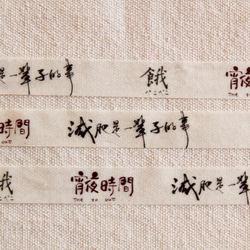 是一輩子的事 餓 宵夜時間
時間 減肥是一輩子的事
餓 宵夜時間 減肥是一